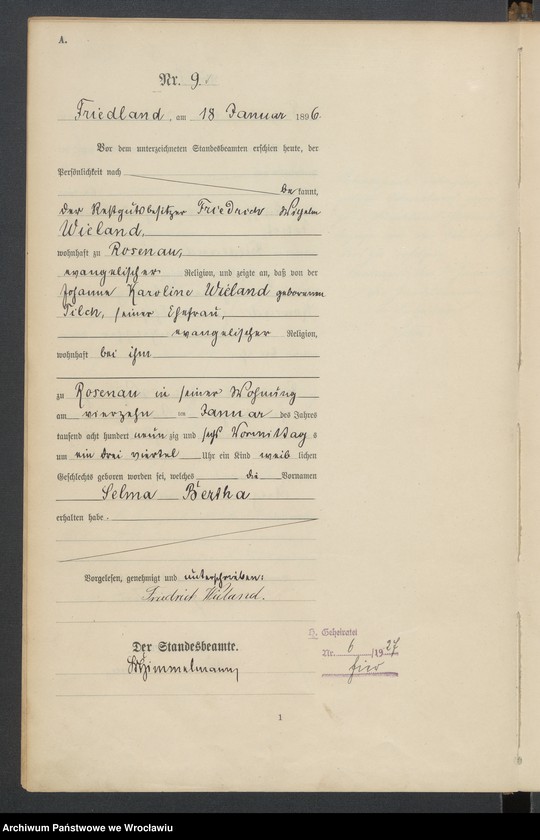 A.
Nr. 9.
Friedland, am 18 Januar 1896.
Vor dem unterzeichneten Standesbeamten erschien heute, der
Persönlichkeit nach
be kannt,
der Restgutsbesitzer Friedrich Wilhelm
Wieland,
wohnhaft zu Rosenau,
evangelischer Religion, und zeigte an, daß von der
Johanne Karoline Wieland geborenen
Tilch, seiner Ehefrau,
evangelischer Religion,
wohnhaft bei ihm
zu Rosenau in seiner Wohnung
am vierzehn ten Januar des Jahres
tausend acht hundert neun zig und sechs Vormittag s
um ein drei viertel Uhr ein Kind weib lichen
Geschlechts geboren worden sei, welches die Vornamen
Selma Bertha
erhalten habe.
Vorgelesen, genehmigt und unterschrieben:
Friedrich Wieland.
Der Standesbeamte.
Geheiratet
Nr. 6 /1927
hier
1
Archiwum Państwowe we Wrocławiu